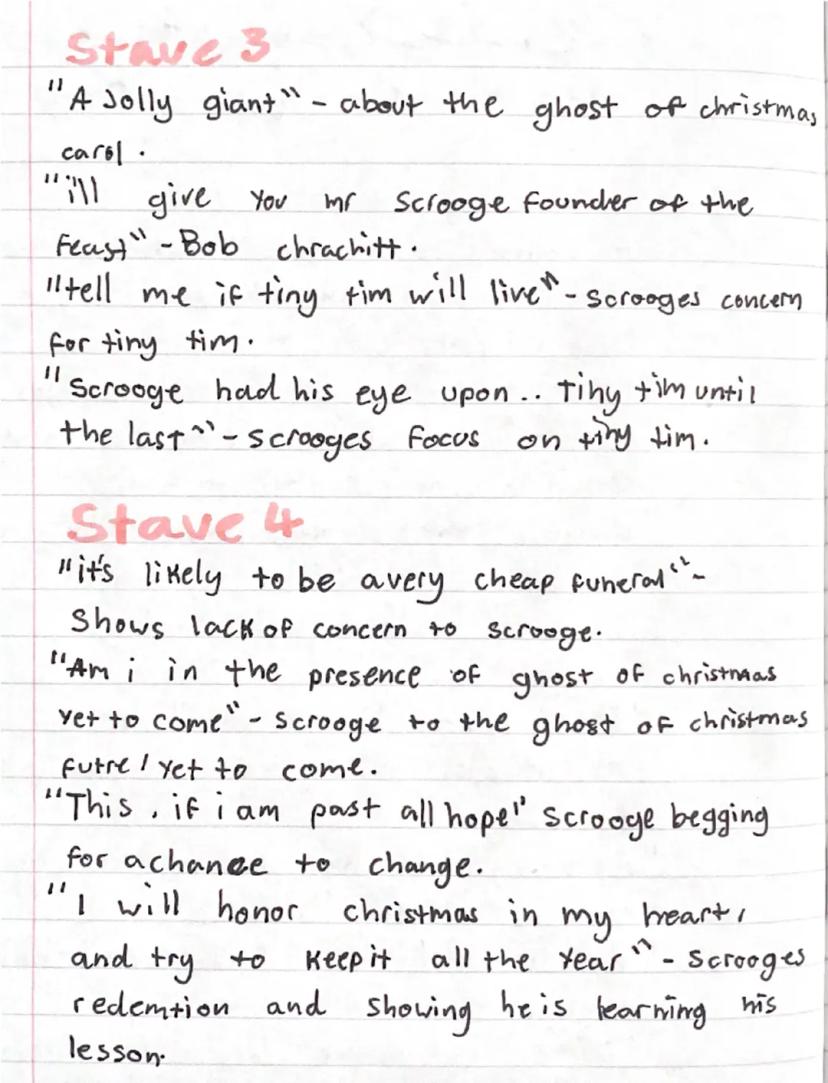 Stave 3
"A Jolly giant" - about the ghost of christmas
carol.
"i'll give you mr Scrooge founder of the
feast" - Bob chrachitt.
"tell me if tiny tim will live" - scrooges concern
for tiny tim.
"Scrooge had his eye upon.. Tiny tim until
the last" - scrooges focus on tiny tim.
Stave 4
"it's likely to be a very cheap funeral" -
Shows lack of concern to scrooge.
"Am i in the presence of ghost of christmas
yet to come" - Scrooge to the ghost of christmas
futre / yet to come.
"This, if i am past all hope" Scrooge begging
for a chance to change.
"I will honor christmas in my heart,
and try to keep it all the year" - Scrooges
redemtion and showing he is learning his
lesson.